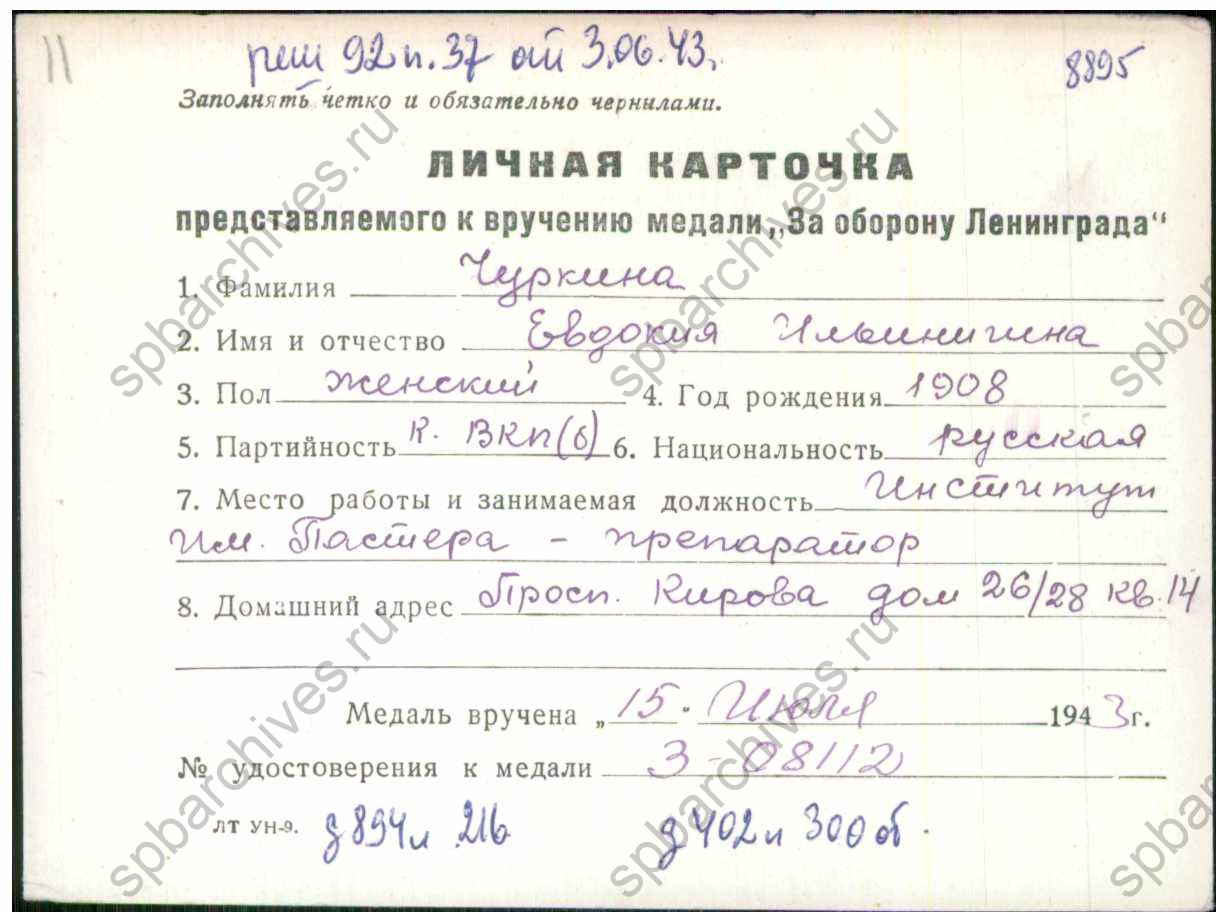 11
реш 92 п. 37 от 3.06.43.
8895
Заполнять четко и обязательно чернилами.
ЛИЧНАЯ КАРТОЧКА
представляемого к вручению медали „За оборону Ленинграда“
1. Фамилия Чуркина
2. Имя и отчество Евдокия Ильинична
3. Пол женский 4. Год рождения 1908
5. Партийность К. ВКП(б) 6. Национальность русская
7. Место работы и занимаемая должность Институт
им. Пастера – препаратор
8. Домашний адрес Просп. Кирова дом 26/28 кв. 14
Медаль вручена „15" Июля 1943 г.
№ удостоверения к медали З-08112
лт ун-э. д 894 л 216 д 402 л 300 об.
spbarchives.ru